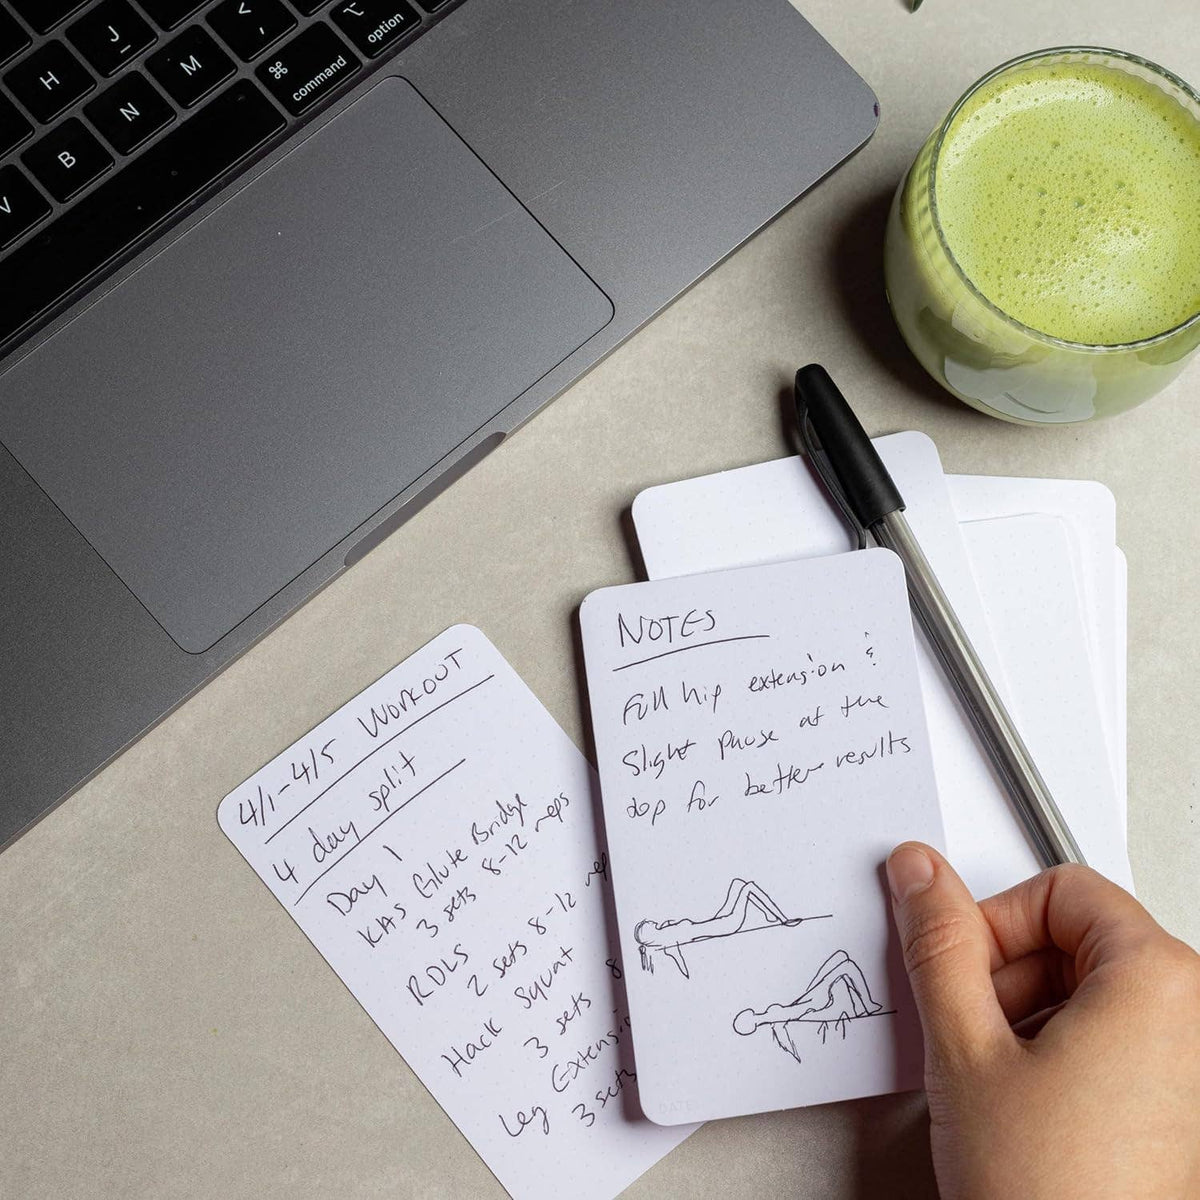 H
J
B
N
M
< ,
V
⌘ command
⌥ option
4/1-4/5 WORKOUT
4 day split
Day 1
KAS Glute Bridge
3 sets 8-12 reps
RDLS
2 sets 8-12 rep
Hack Squat
3 sets 8
Leg Extensio
3 sets
NOTES
Full hip extension &
Slight pause at the
top for better results
DATE